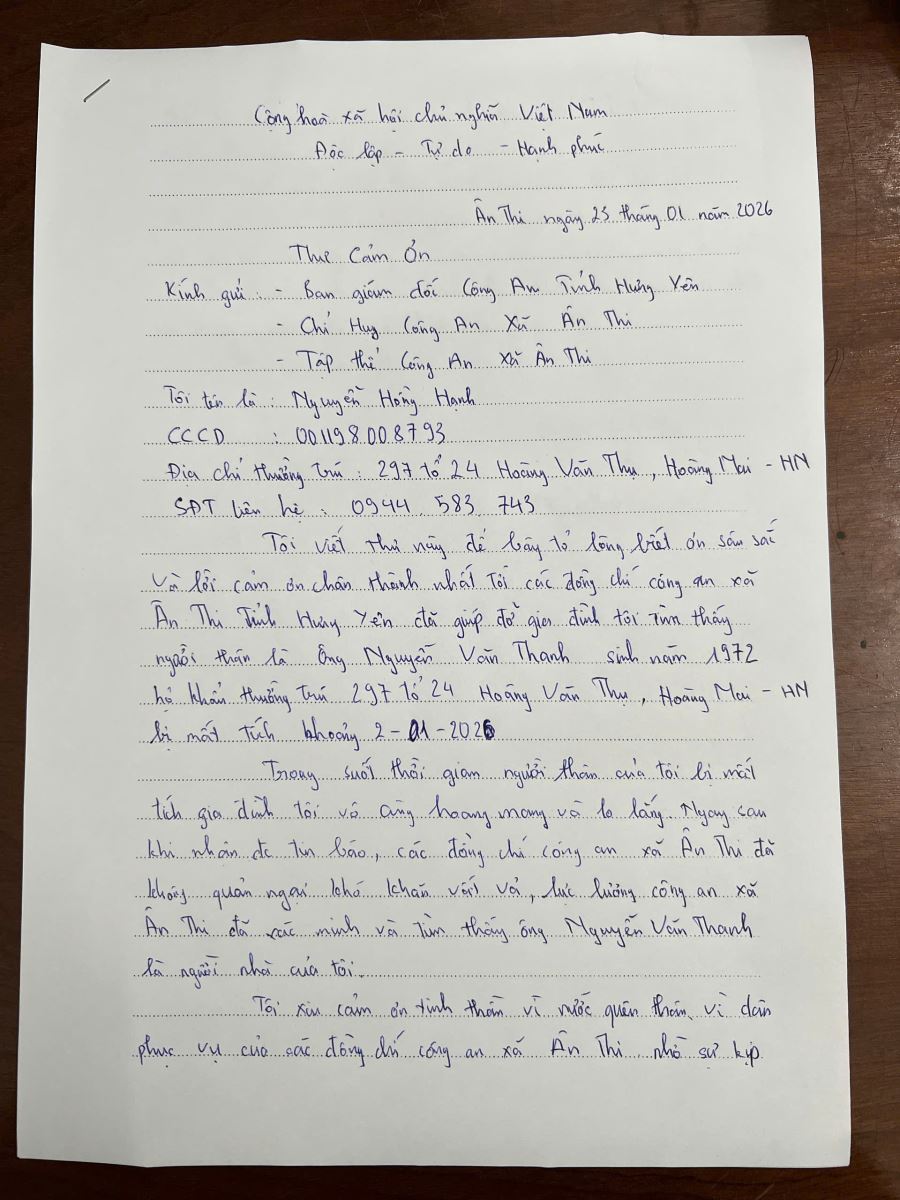 Cộng hoà xã hội chủ nghĩa Việt Nam
Độc lập - Tự do - Hạnh phúc
Ân Thi ngày 23 tháng 01 năm 2026
Thư Cảm Ơn
Kính gửi : - Ban giám đốc Công An Tỉnh Hưng Yên
- Chỉ Huy Công An Xã Ân Thi
- Tập thể Công An xã Ân Thi
Tôi tên là : Nguyễn Hồng Hạnh
CCCD : 001198008793
Địa chỉ thường trú : 297 tổ 24 Hoàng Văn Thụ, Hoàng Mai - HN
SĐT liên hệ : 0944 583 743
Tôi viết thư này để bày tỏ lòng biết ơn sâu sắc
và lời cảm ơn chân thành nhất tới các đồng chí công an xã
Ân Thi Tỉnh Hưng Yên đã giúp đỡ gia đình tôi tìm thấy
người thân là Ông Nguyễn Văn Thanh sinh năm 1972
hộ khẩu thường trú 297 tổ 24 Hoàng Văn Thụ, Hoàng Mai - HN
bị mất tích khoảng 2-01-2026
Trong suốt thời gian người thân của tôi bị mất
tích gia đình tôi vô cùng hoang mang và lo lắng. Ngay sau
khi nhận đc tin báo, các đồng chí công an xã Ân Thi đã
không quản ngại khó khăn vất vả, lực lượng công an xã
Ân Thi đã xác minh và tìm thấy ông Nguyễn Văn Thanh
là người nhà của tôi.
Tôi xin cảm ơn tinh thần vì nước quên thân, vì dân
phục vụ của các đồng chí công an xã Ân Thi, nhờ sự kịp